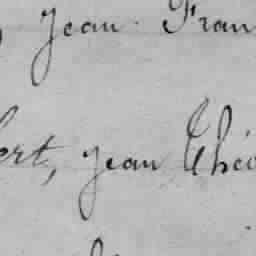 , Jean Fran
bert, Jean Théo